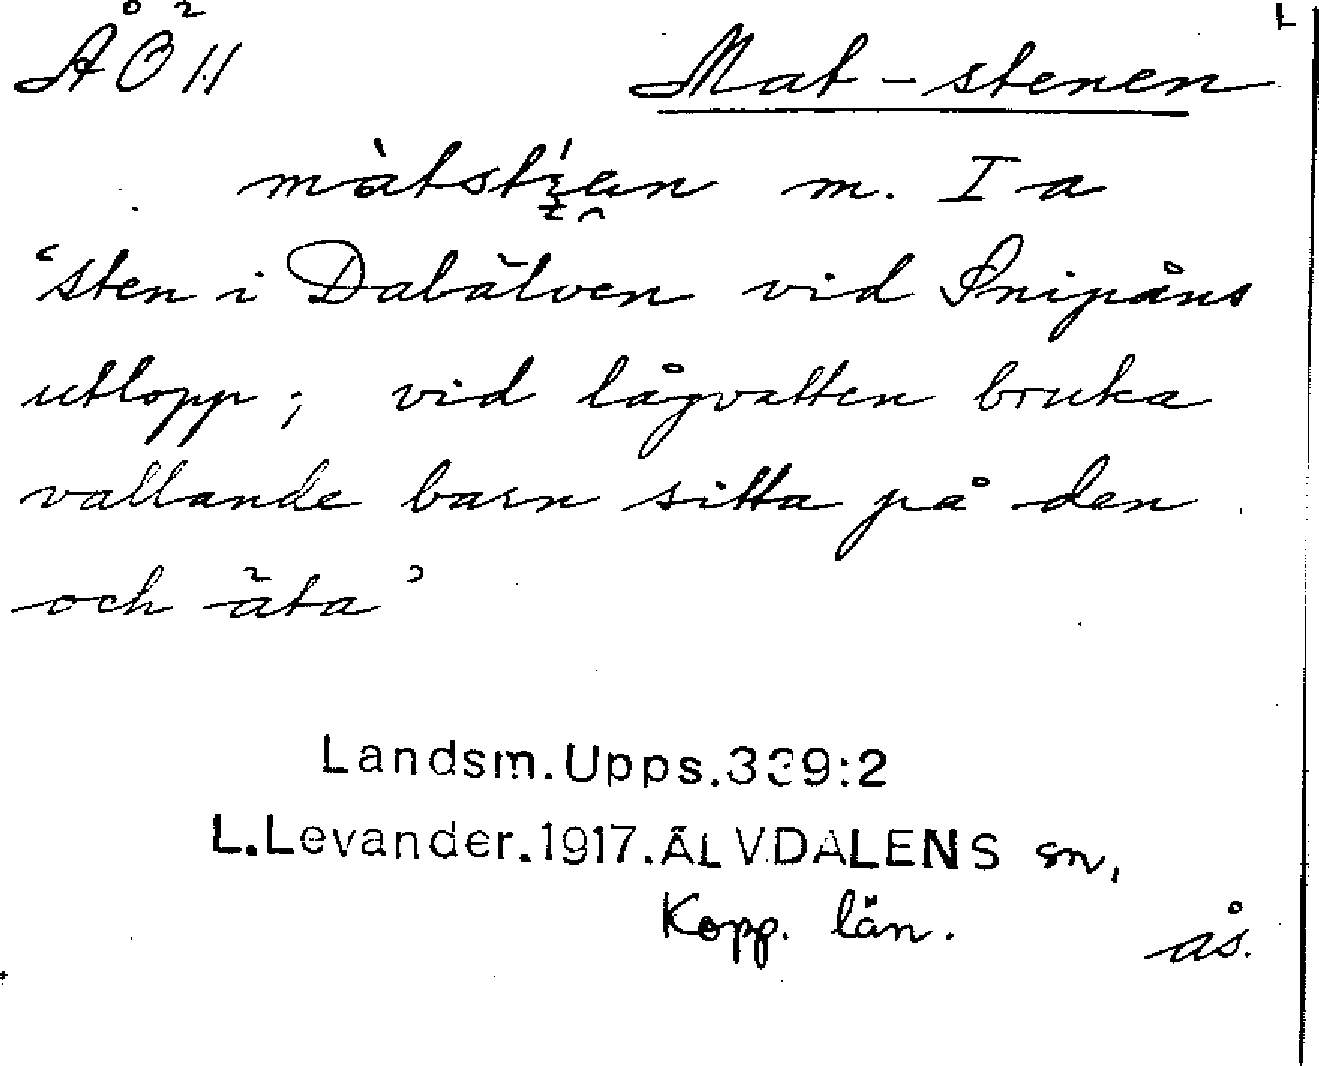 ÅÖH Mat-stenen
màtstįe̯n m. I a
‘sten i Dabälven vid Snipåns
utlopp; vid lågvatten bruka
vallande barn sitta på den
och äta’
Landsm.Upps.339:2
L.Levander.1917.ÄLVDALENS sn,
Kopp. län.
ås.